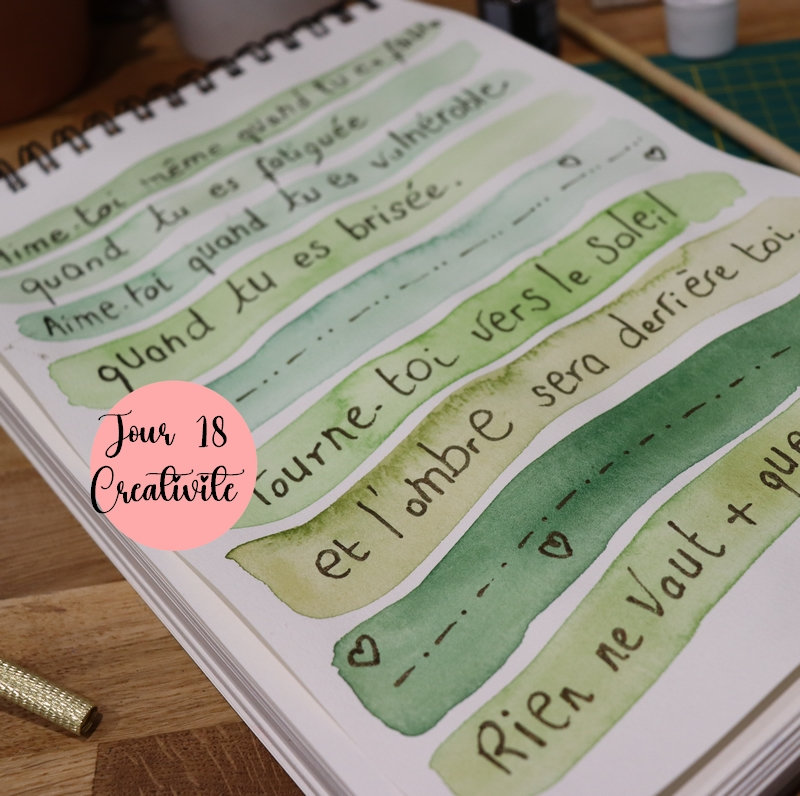 Aime-toi même quand tu es faible
quand tu es fatiguée
Aime-toi quand tu es vulnérable
quand tu es brisée.
Tourne-toi vers le Soleil
et l'ombre sera derrière toi.
Rien ne vaut + que
Jour 18
Creativite